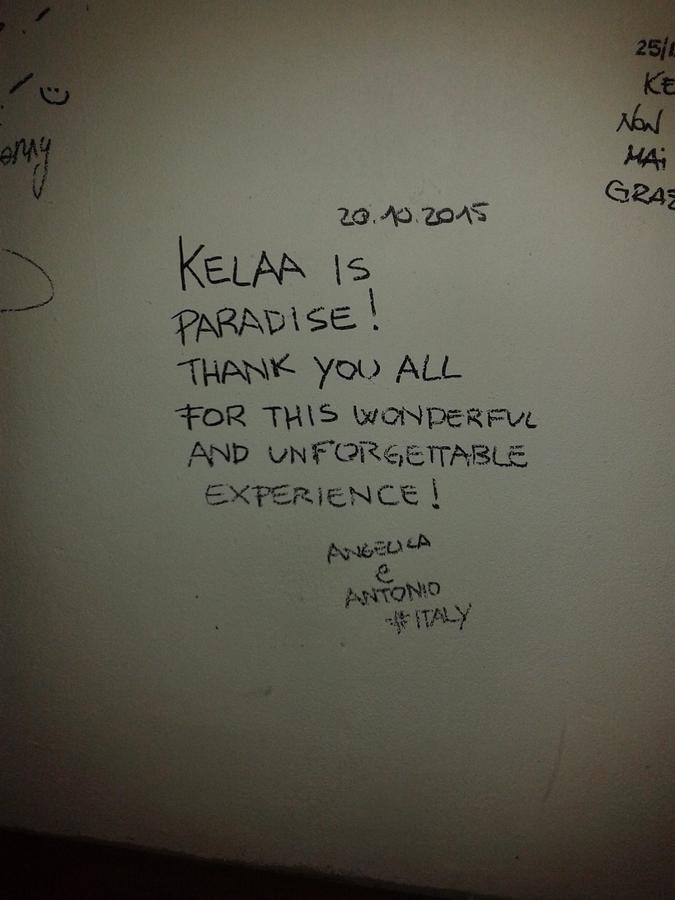 20.10.2015
KELAA IS
PARADISE!
THANK YOU ALL
FOR THIS WONDERFUL
AND UNFORGETTABLE
EXPERIENCE!
ANGELICA
e
ANTONIO
#ITALY
25/
KE
NON
MAi
GRAZ